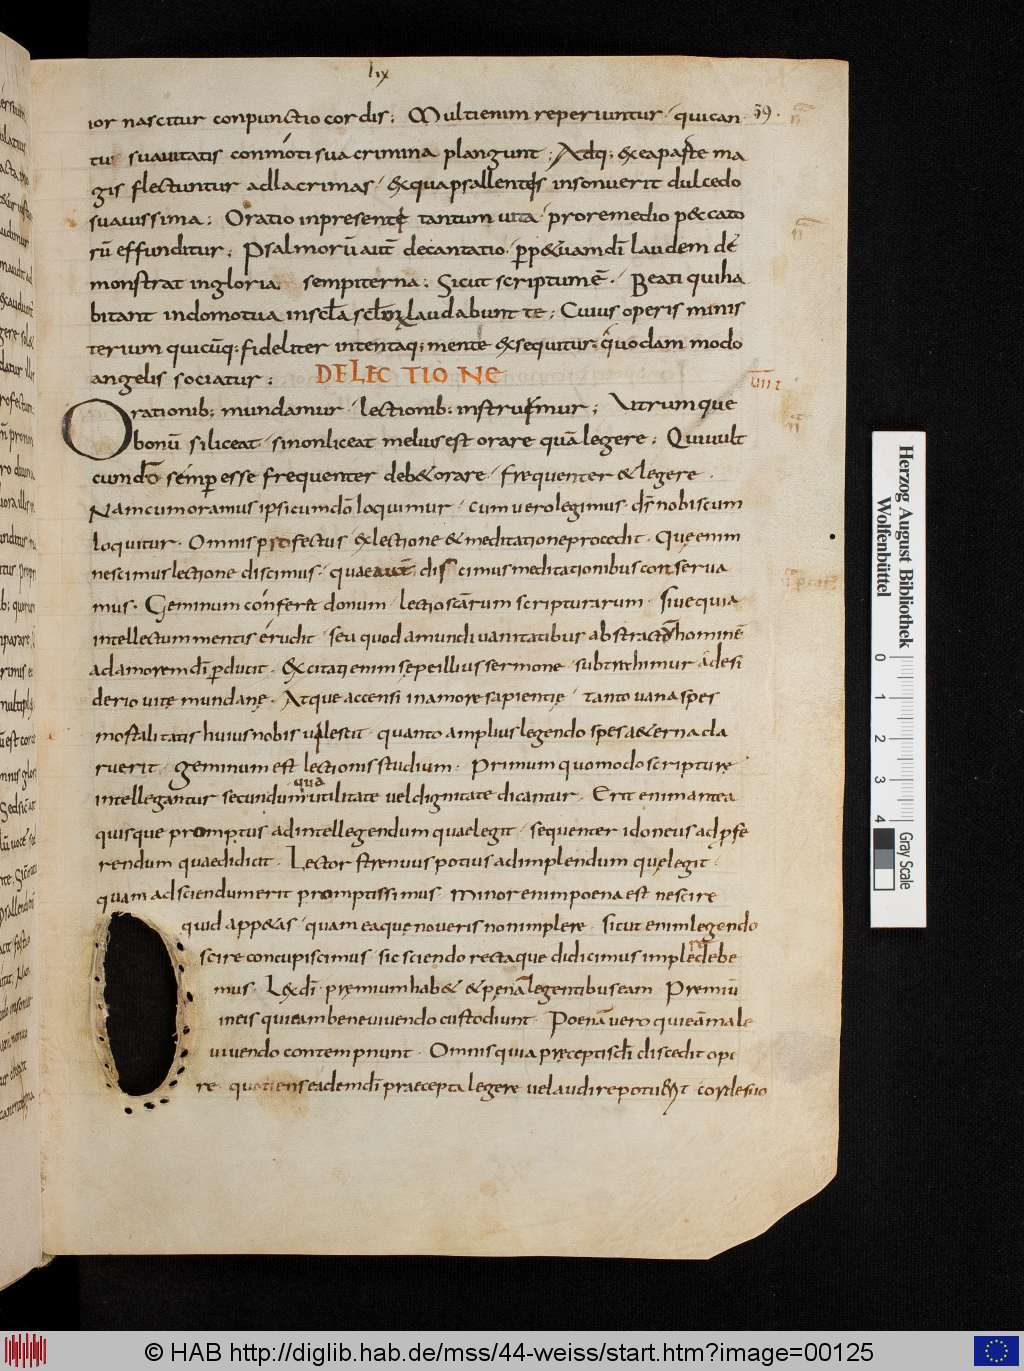 lix
ior nascitur conpunctio cordis; Multi enim reperiuntur qui can 59.
tus suavitatis conmoti sua crimina plangunt; Adq; ex ea parte ma
gis flectuntur ad lacrimas, ex qua psallentis insonuerit dulcedo
suavissima; Oratio in presenti tantum vita pro remedio peccato
rū effunditur; Psalmorū autē decantatio ꝑpetuam dī laudem dē
monstrat in gloria sempiterna; Sicut scriptum ē. Beati qui ha
bitant in domo tua in scła scłorum laudabunt te; Cuius operis minis
terium quicūq; fideliter intentaq; mente exsequitur, quodam modo
angelis sociatur; DE LECTIONE
Orationib; mundamur, lectionib; instruimur; Utrumque
bonū si liceat, si non liceat melius est orare quā legere; Qui vult
cum dō semꝑ esse frequenter debet orare, frequenter et legere.
Nam cum oramus ipsi cum dō loquimur, cum vero legimus ds nobiscum
loquitur. Omnis profectus ex lectione et meditatione procedit. Quę enim
nescimus lectione discimus, quae autē discimus meditationibus conserva
mus. Geminum confert donum lectio scārum scripturarum. Sive quia
intellectum mentis erudit, seu quod a mundi vanitatibus abstractū hominē
ad amorem dī ꝑducit. Excitati enim sępe illius sermone subtrahimur a desi
derio vitę mundanę. Atque accensi in amore sapientię, tanto vana spes
mortalitatis huius nobis vilescit, quanto amplius legendo spes aeterna cla
ruerit. Geminum est lectionis studium. Primum quomodo scripturę
intellegantur secundum qua utilitate vel dignitate dicantur. Erit enim antea
quisque promptus ad intellegendum quae legit, sequenter idoneus ad ꝓfe
rendum quae didicit. Lector strenuus potius ad implendum quę legit
quam ad sciendum erit promptissimus. Minor enim poena est nescire
quid appetas, quam ea que noveris non implere. Sicut enim legendo
scire concupiscimus, sic sciendo recta que didicimus implere debe
mus. Lex dī pręmium habet et pęnā legentibus eam. Premiū
in eis qui eam bene vivendo custodiunt. Poenā vero qui eā male
vivendo contempnunt. Omnis qui a pręceptis dī discedit ope
re quotiens eadem dī praecepta legere vel audire potuerit corde suo
Herzog August Bibliothek
Wolfenbüttel
0 1 2 3 4
Gray Scale
© HAB http://diglib.hab.de/mss/44-weiss/start.htm?image=00125